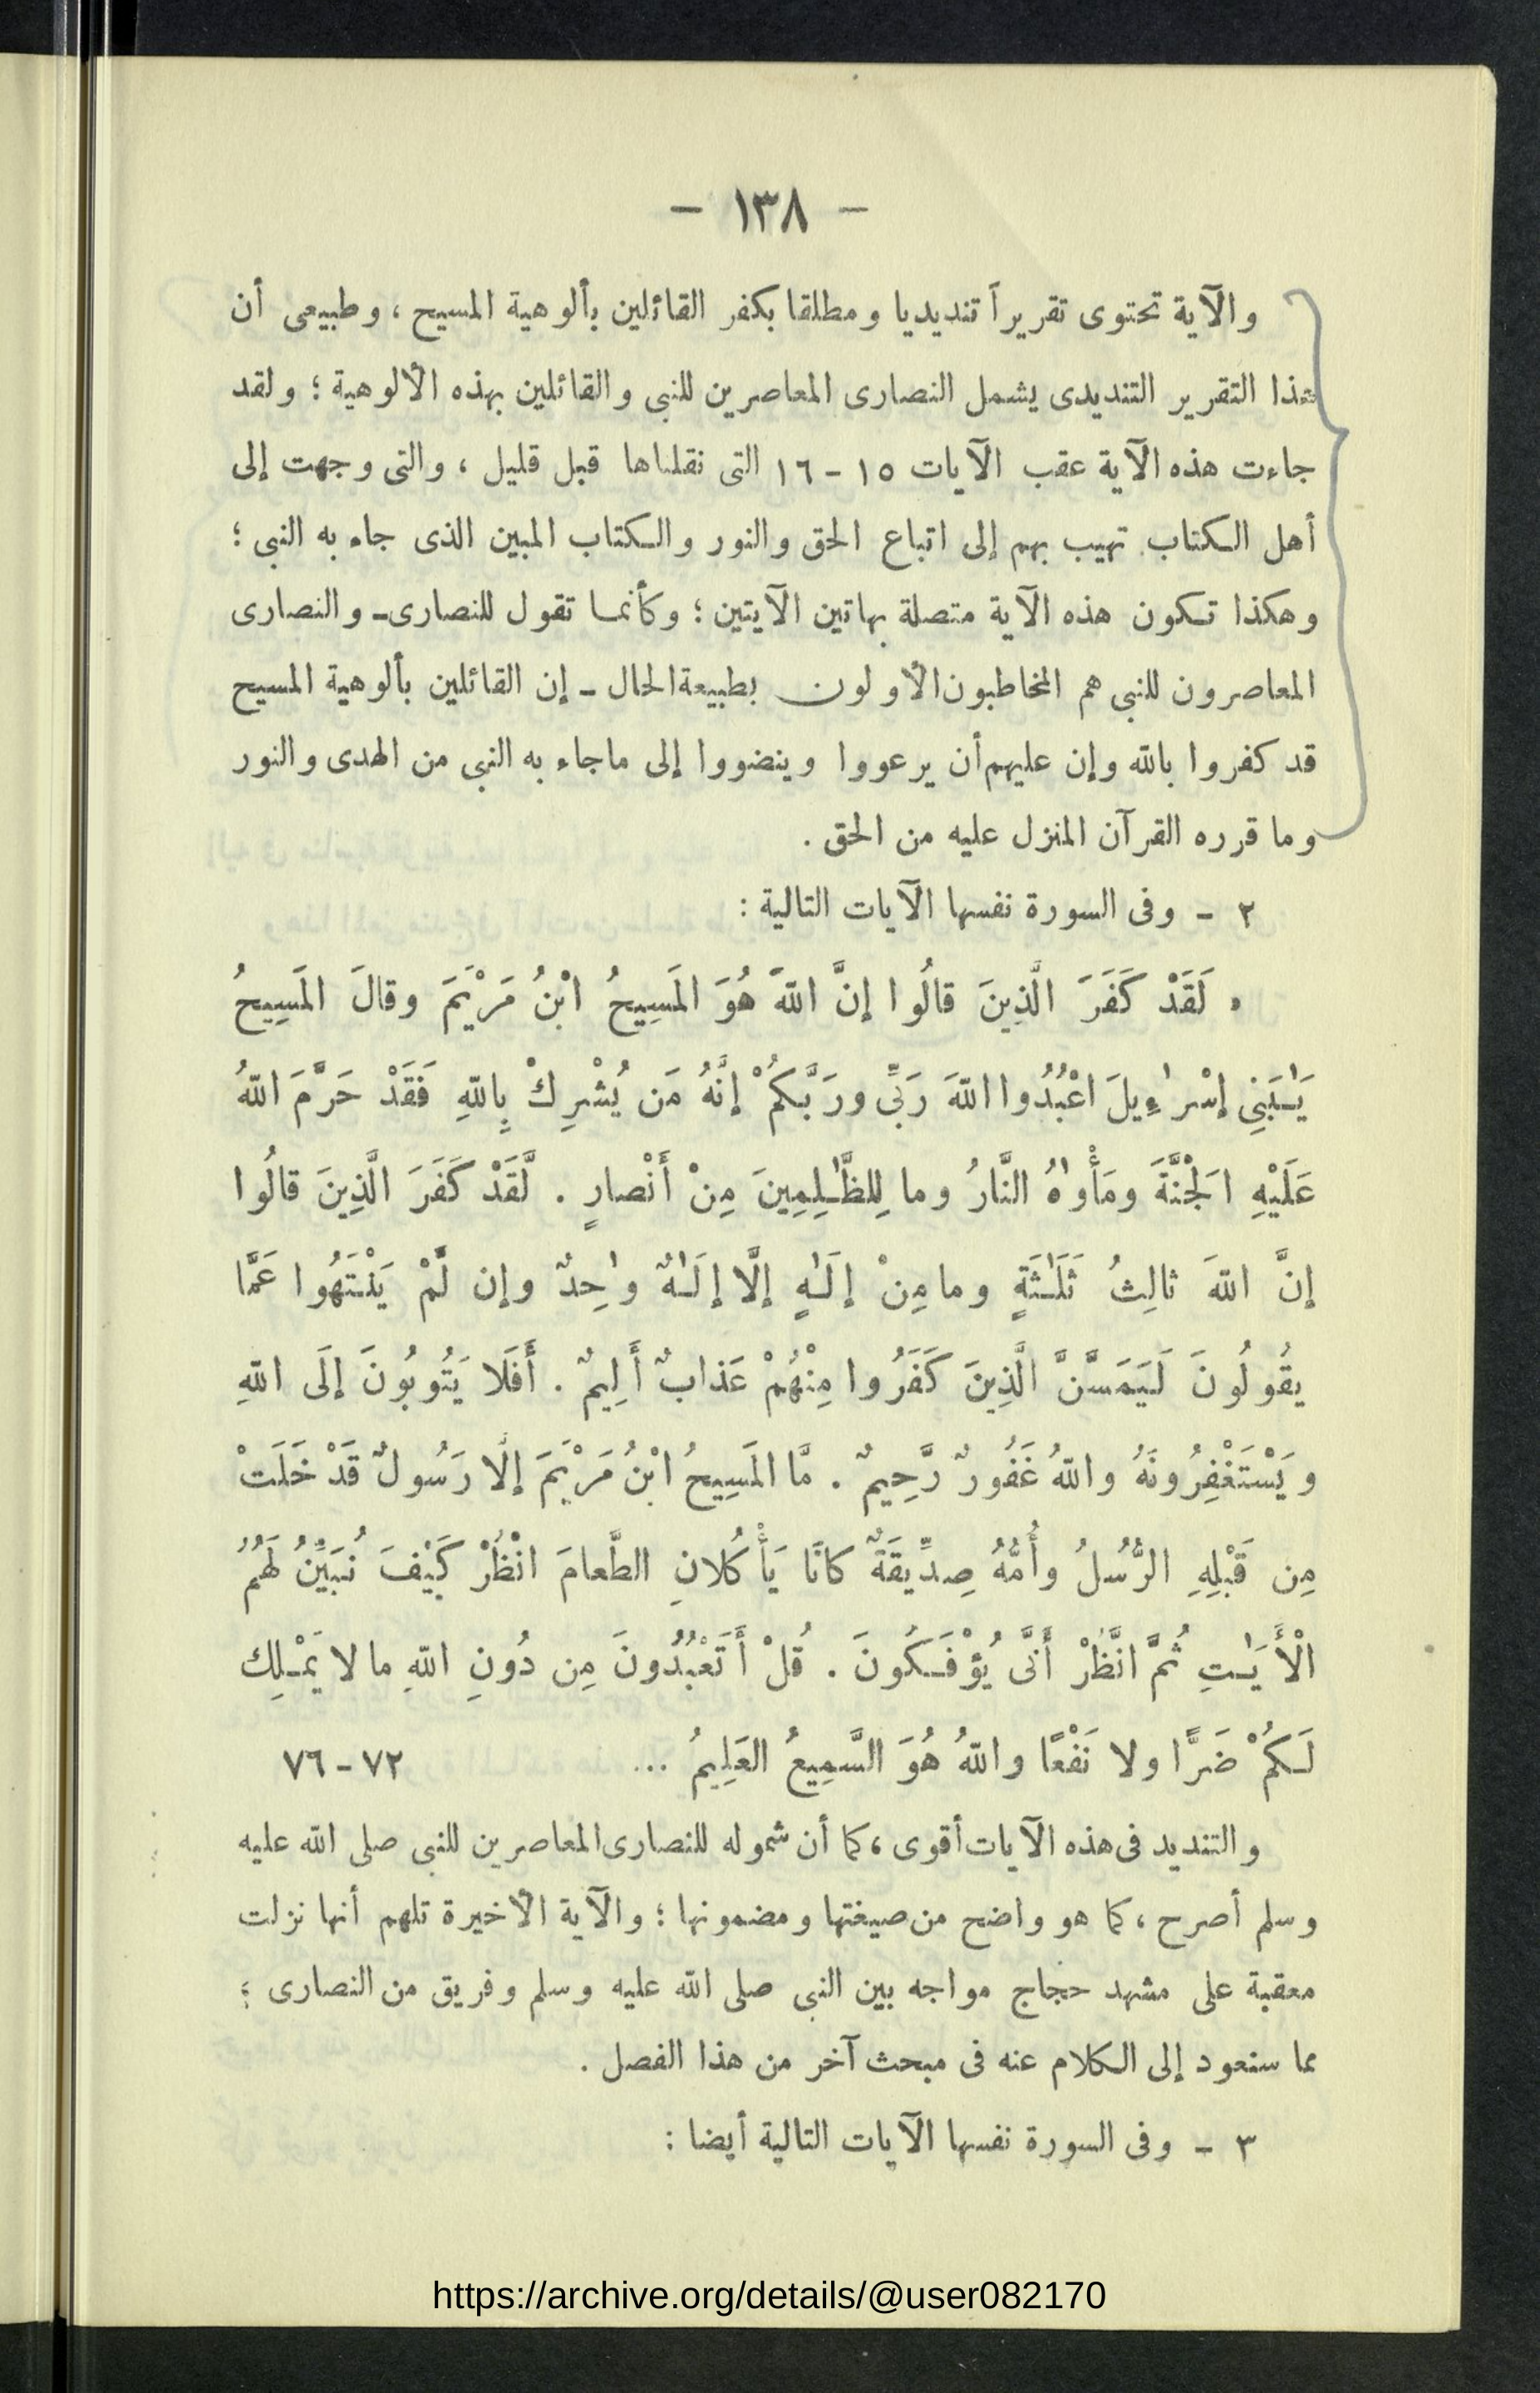 — ١٣٨ —
والآية تحتوى تقريراً تنديديا ومطلقا بكفر القائلين بألوهية المسيح ، وطبيعى أن
هذا التقرير التنديدى يشمل النصارى المعاصرين للنبى والقائلين بهذه الألوهية ؛ ولقد
جاءت هذه الآية عقب الآيات ١٥ – ١٦ التى نقلناها قبل قليل ، والتى وجهت إلى
أهل الكتاب تهيب بهم إلى اتباع الحق والنور والكتاب المبين الذى جاء به النبى ؛
وهكذا تكون هذه الآية متصلة بهاتين الآيتين ؛ وكأنما تقول للنصارى – والنصارى
المعاصرون للنبى هم المخاطبون الأولون بطبيعة الحال – إن القائلين بألوهية المسيح
قد كفروا بالله وإن عليهم أن يرعووا وينضووا إلى ماجاء به النبى من الهدى والنور
وما قرره القرآن المنزل عليه من الحق .
٢ – وفى السورة نفسها الآيات التالية :
« لَقَدْ كَفَرَ الَّذِينَ قالُوا إنَّ اللهَ هُوَ المَسِيحُ ابْنُ مَرْيَمَ وقالَ المَسِيحُ
يَـٰبَنِى إسْرٰءِيلَ اعْبُدُوا اللهَ رَبِّى ورَبَّكُمْ إنَّهُ مَن يُشْرِكْ بِاللهِ فَقَدْ حَرَّمَ اللهُ
عَلَيْهِ الَجْنَّةَ ومَأْوٰهُ النَّارُ وما لِلظَّـٰلِمِينَ مِنْ أَنْصارٍ . لَّقَدْ كَفَرَ الَّذِينَ قالُوا
إنَّ اللهَ ثالِثُ ثَلَـٰثَةٍ وما مِنْ إلَـٰهٍ إلَّا إلَـٰهٌ وٰحِدٌ وإن لَّمْ يَنْتَهُوا عَمَّا
يقُولُونَ لَيَمَسَّنَّ الَّذِينَ كَفَرُوا مِنْهُمْ عَذابٌ أَلِيمٌ . أَفَلَا يَتُوبُونَ إلَى اللهِ
ويَسْتَغْفِرُونَهُ واللهُ غَفُورٌ رَّحِيمٌ . مَّا المَسِيحُ ابْنُ مَرْيَمَ إلَّا رَسُولٌ قَدْ خَلَتْ
مِن قَبْلِهِ الرُّسُلُ وأُمُّهُ صِدِّيقَةٌ كانَا يَأْكُلانِ الطَّعامَ انْظُرْ كَيْفَ نُبَيِّنُ لَهُمُ
الْأَيَـٰتِ ثُمَّ انَّظُرْ أَنَّى يُؤْفَكُونَ . قُلْ أَتَعْبُدُونَ مِن دُونِ اللهِ ما لا يَمْـلِك
لَـكُمْ ضَرًّا ولا نَفْعًا واللهُ هُوَ السَّمِيعُ العَلِيمُ ... ٧٢ – ٧٦
والتنديد فى هذه الآيات أقوى ، كما أن شموله للنصارى المعاصرين للنبى صلى الله عليه
وسلم أصرح ، كما هو واضح من صيغتها ومضمونها ؛ والآية الأخيرة تلهم أنها نزلت
معقبة على مشهد حجاج مواجه بين النبى صلى الله عليه وسلم وفريق من النصارى ؛
مما سنعود إلى الكلام عنه فى مبحث آخر من هذا الفصل .
٣ – وفى السورة نفسها الآيات التالية أيضا :
https://archive.org/details/@user082170